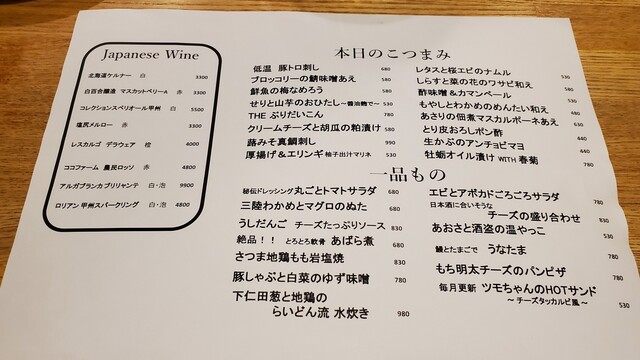 Japanese Wine
北海道ケルナー 白 3300
白百合醸造 マスカットベリーA 赤 3300
コレクションスペリオール甲州 白 5500
塩尻メルロー 赤 3300
レスカルゴ デラウェア 橙 4000
ココファーム 農民ロッソ 赤 4800
アルガブランカ ブリリャンテ 白・泡 9900
ロリアン 甲州スパークリング 白・泡 4800
本日のこつまみ
低温 豚トロ刺し 680
ブロッコリーの鯖味噌あえ 580
鮮魚の梅なめろう 580
せりと山芋のおひたし～醤油麹で～ 530
THE ぶりだいこん 780
クリームチーズと胡瓜の粕漬け 580
藷みそ真鯛刺し 990
厚揚げ＆エリンギ 柚子出汁マリネ 530
レタスと桜エビのナムル 530
しらすと菜の花のワサビ和え 580
酢味噌＆カマンベール 580
もやしとわかめのめんたい和え 480
あさりの佃煮マスカルポーネあえ 630
とり皮おろしポン酢 440
生かぶのアンチョビマヨ 440
牡蛎オイル漬け WITH 春菊 780
一品もの
秘伝ドレッシング 丸ごとトマトサラダ 680
三陸わかめとマグロのぬた 680
うしだんご チーズたっぷりソース 830
絶品！！ とろとろ軟骨 あばら煮 680
さつま地鶏もも岩塩焼 830
豚しゃぶと白菜のゆず味噌 780
下仁田葱と地鶏の
らいどん流 水炊き 980
エビとアボカドごろごろサラダ 780
日本酒に合いそうな
チーズの盛り合わせ 830
あおさと酒盗の温やっこ 530
鰻とたまごで うなたま 780
もち明太チーズのパンピザ 780
毎月更新 ツモちゃんのHOTサンド 530
～ チーズタッカルビ風 ～